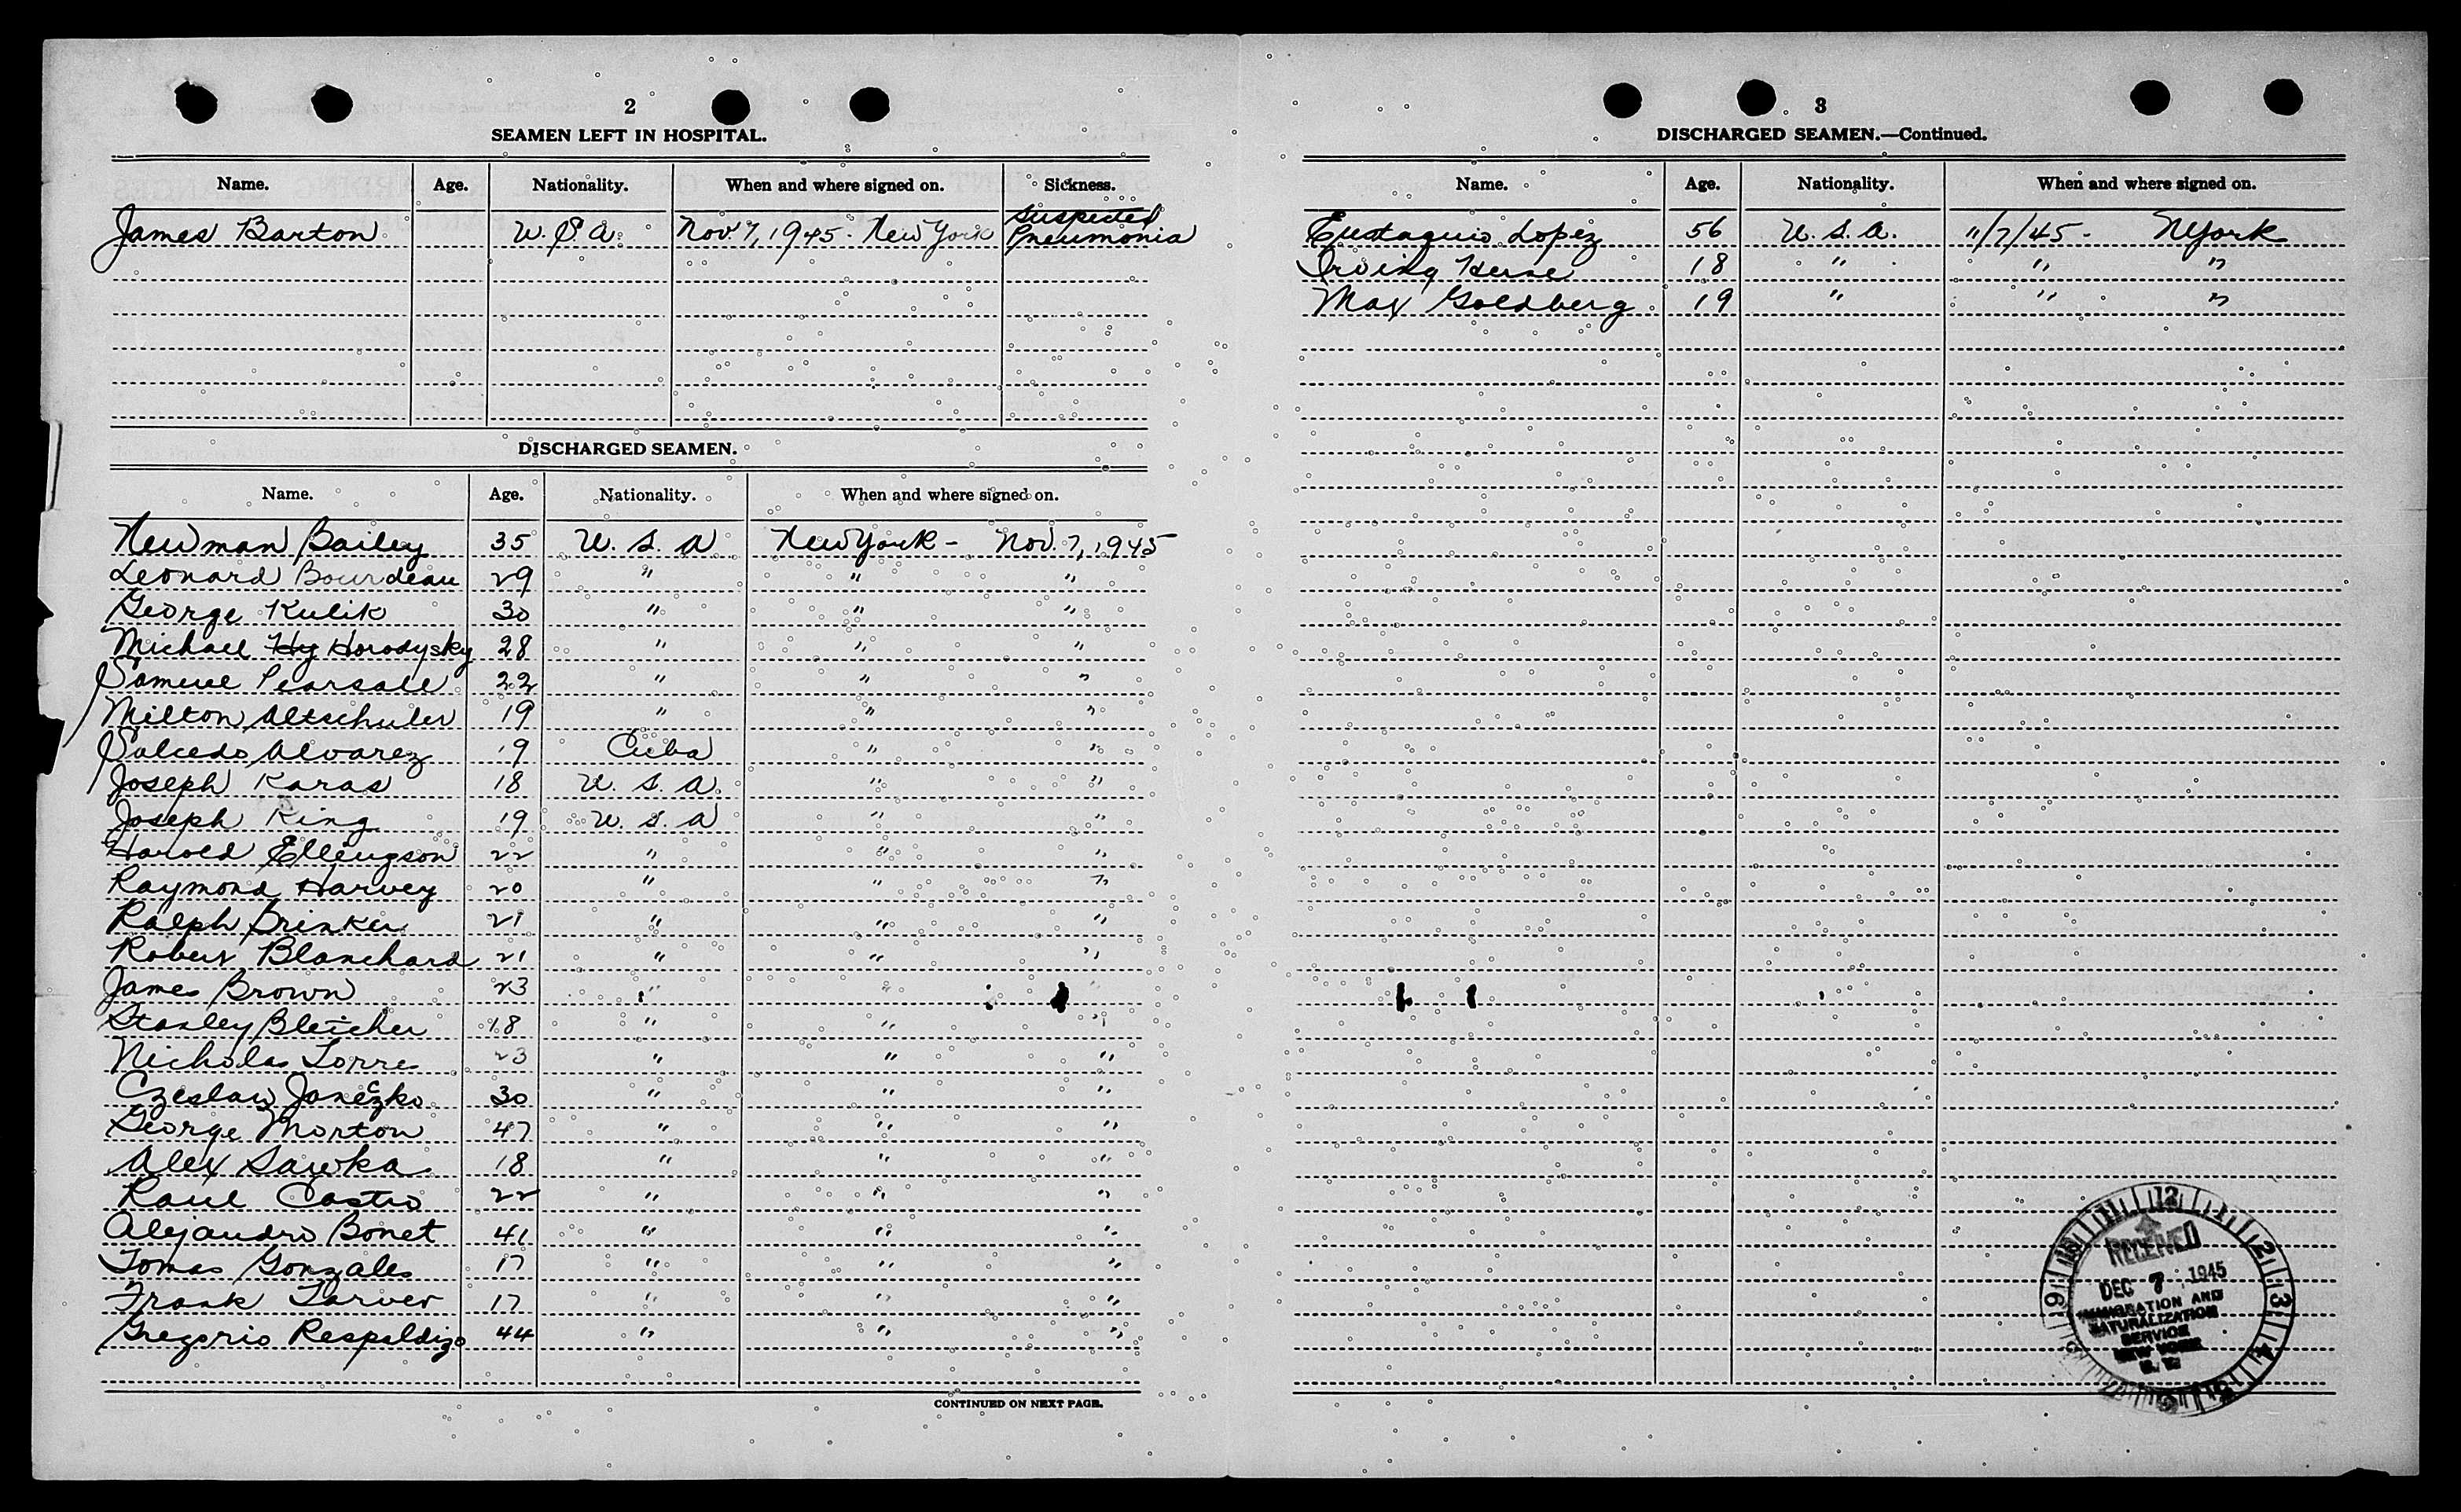 2
SEAMEN LEFT IN HOSPITAL.
Name. Age. Nationality. When and where signed on. Sickness.
James Barton U.S.A. Nov. 7, 1945 - New York Suspected Pneumonia
DISCHARGED SEAMEN.
Name. Age. Nationality. When and where signed on.
Newman Bailey 35 U. S. A New York - Nov. 7, 1945
Leonard Bourdeau 29 " " "
George Kulik 30 " " "
Michael Hy Horodysky 28 " " "
Samuel Pearsall 22 " " "
Milton Altschuler 19 " " "
Salcedo Alvarez 19 Cuba " "
Joseph Karas 18 U. S. A. " "
Joseph King 19 U. S. A " "
Harold Ellingson 22 " " "
Raymond Harvey 20 " " "
Ralph Brinker 21 " " "
Robert Blanchard 21 " " "
James Brown 23 " " "
Stanley Bleicher 18 " " "
Nicholas Torres 23 " " "
Czeslaw Janeczko 30 " " "
George Morton 47 " " "
Alex Sawka 18 " " "
Raul Castro 22 " " "
Alejandro Bonet 41 " " "
Tomas Gonzales 17 " " "
Frank Tarver 17 " " "
Gregorio Respaldizo 44 " " "
CONTINUED ON NEXT PAGE.
3
DISCHARGED SEAMEN.—Continued.
Name. Age. Nationality. When and where signed on.
Eustaquio Lopez 56 U. S. A. 11/7/45 - NYork
Irving 18 " " "
Max Goldberg 19 " " "
12 1 2 3 4 5 6 7 9 10 11
RECEIVED
DEC 7 1945
IMMIGRATION AND
NATURALIZATION
SERVICE
NEW YORK
N. Y.